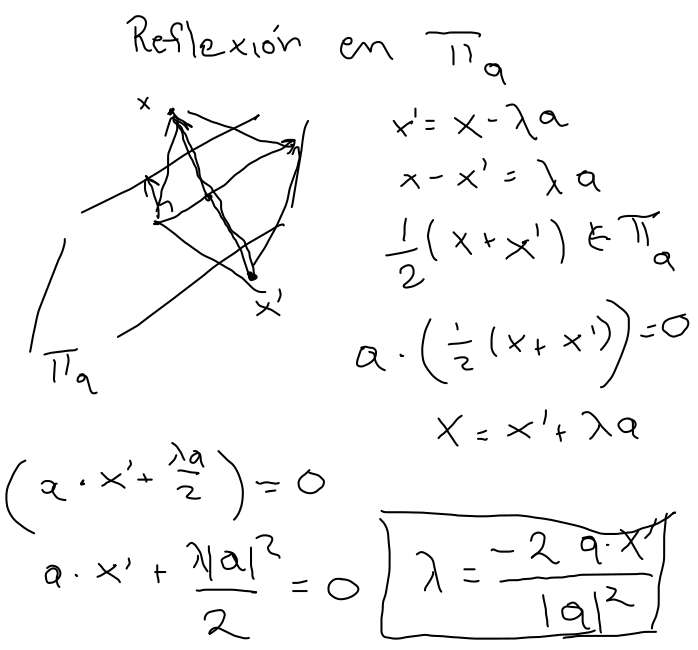 Reflexión en π_a
x
x' = x - λa
x - x' = λa
1/2 (x + x') ∈ π_a
x'
π_a
a · (1/2 (x + x')) = 0
x = x' + λa
(a · x' + λa/2) = 0
a · x' + λ|a|²/2 = 0
λ = -2 a·x' / |a|²